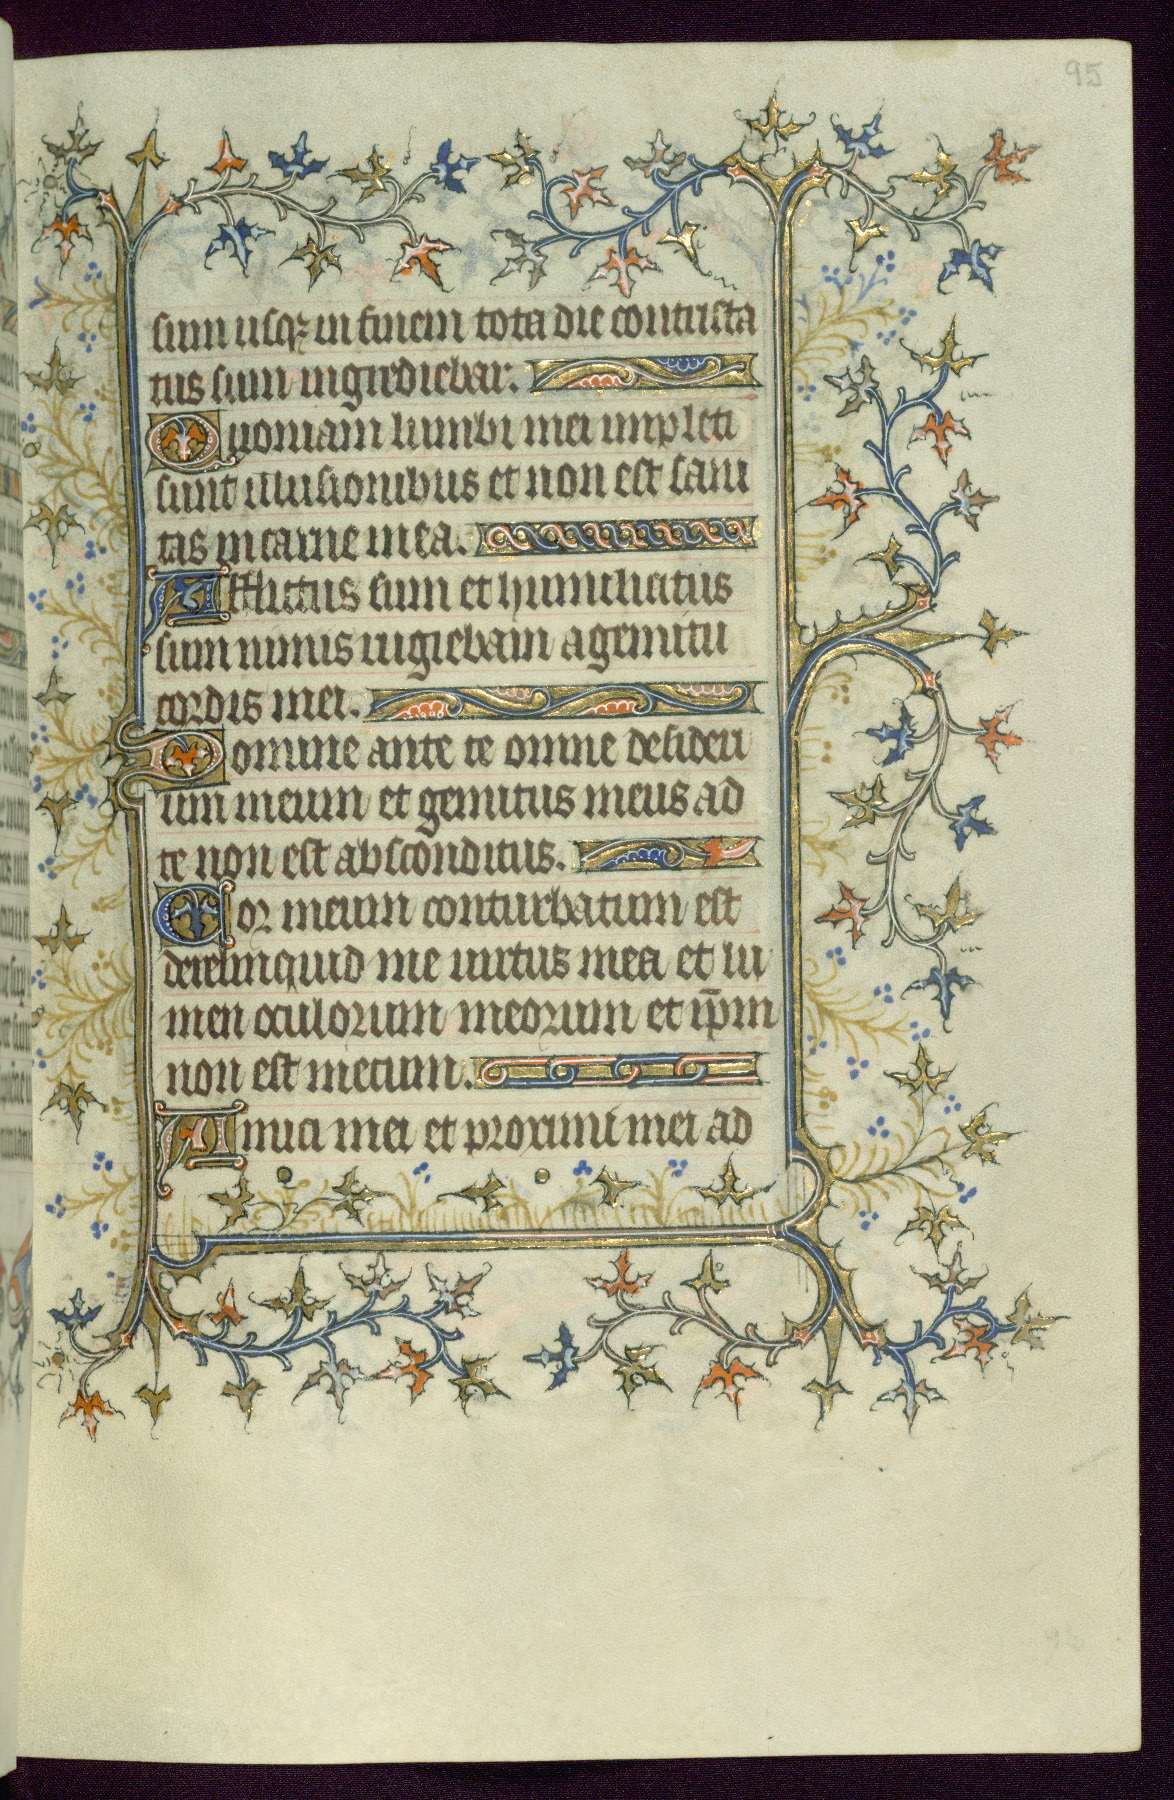 95
sum usqꝫ in finem tota die contrista
tus sum ingrediebar.
Quoniam lumbi mei impleti
sunt illusionibus et non est sani
tas in carne mea.
Afflictus sum et humiliatus
sum nimis rugiebam a gemitu
cordis mei.
Domine ante te omne desideri
um meum et gemitus meus ad
te non est absconditus.
Cor meum conturbatum est
dereliquid me uirtus mea et lu
men oculorum meorum et ip̄m
non est mecum.
Amici mei et proximi mei ad